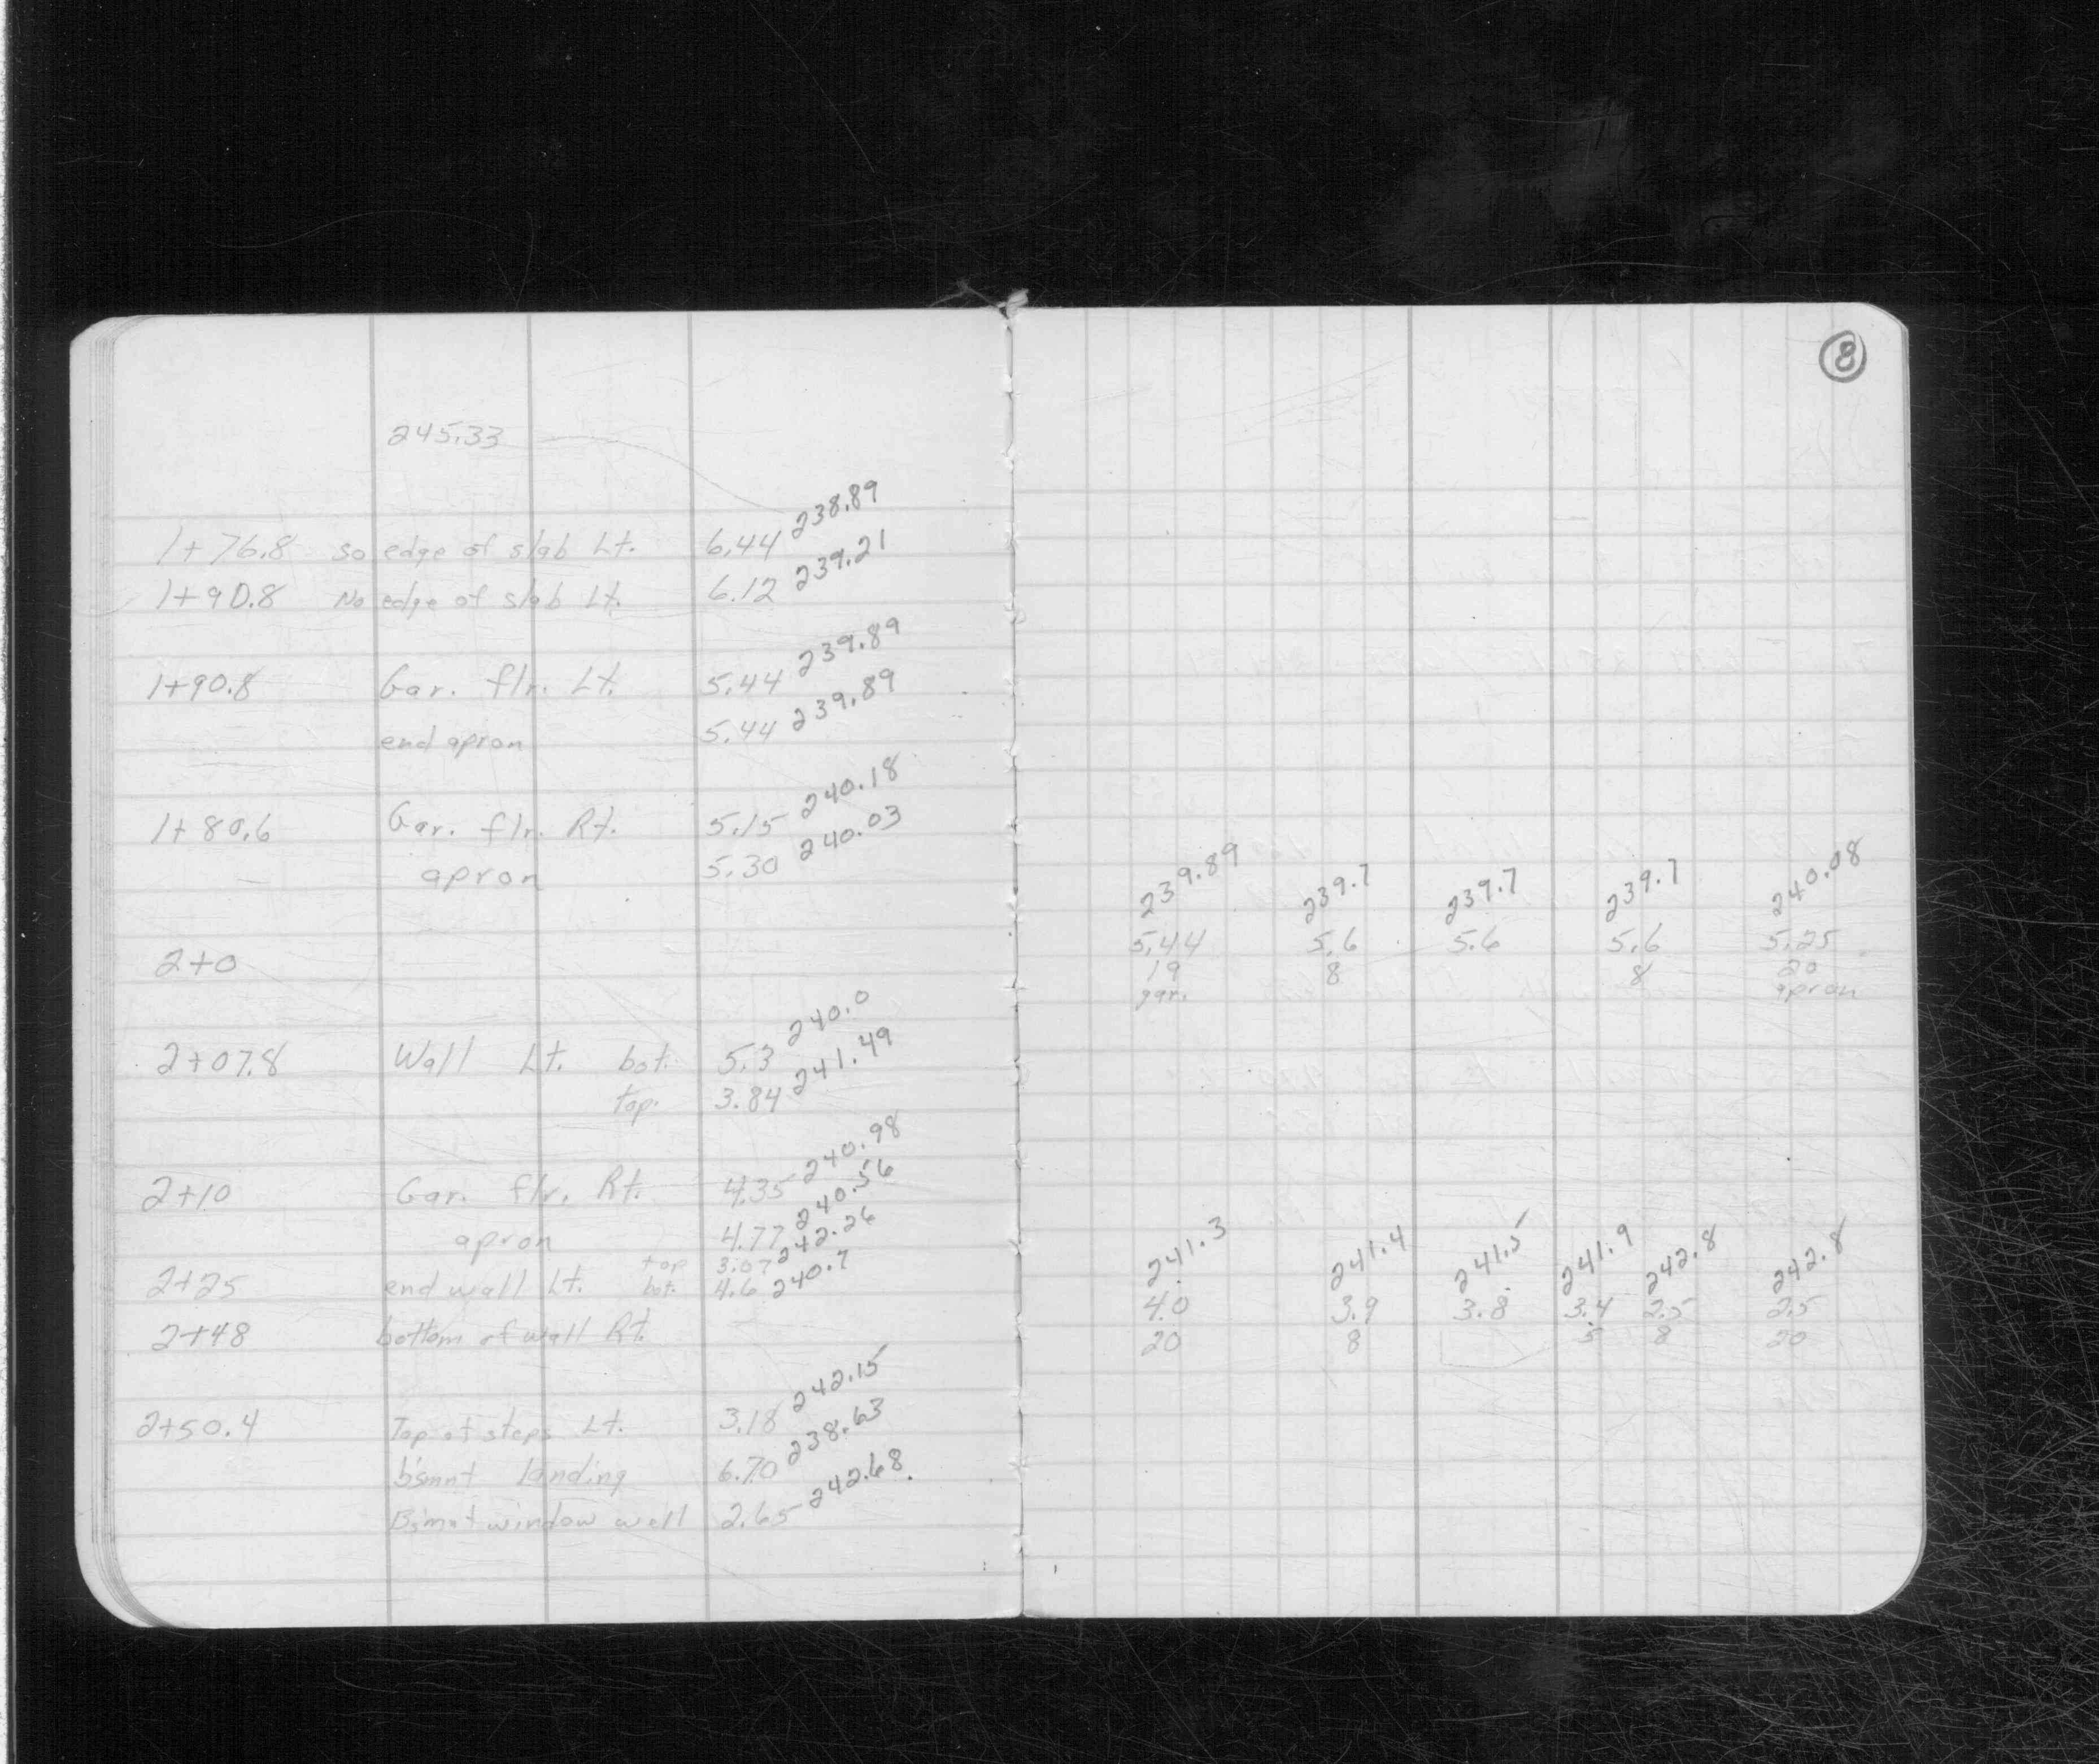 245.33
1+76.8 so edge of slab Lt. 6.44 238.89
1+90.8 No edge of slab Lt. 6.12 239.21
1+90.8 Gar. flr. Lt. 5.44 239.89
end apron 5.44 239.89
1+80.6 Gar. flr. Rt. 5.15 240.18
apron 5.30 240.03
2+0
2+07.8 Wall Lt. bot. 5.3 240.0
top. 3.84 241.49
2+10 Gar. flr. Rt. 4.35 240.98
apron 4.77 240.56
top 3.07 242.26
2+25 end wall Lt. bot. 4.6 240.7
2+48 bottom of wall Rt.
2+50.4 Top of steps Lt. 3.18 242.15
b'smnt landing 6.70 238.63
B'smnt window well 2.65 242.68
8
239.89 239.7 239.7 239.7 240.08
5.44 5.6 5.6 5.6 5.25
19 8 8 20
gar. apron
241.3 241.4 241.5 241.9 242.8 242.8
4.0 3.9 3.8 3.4 2.5 2.5
20 8 5 8 20